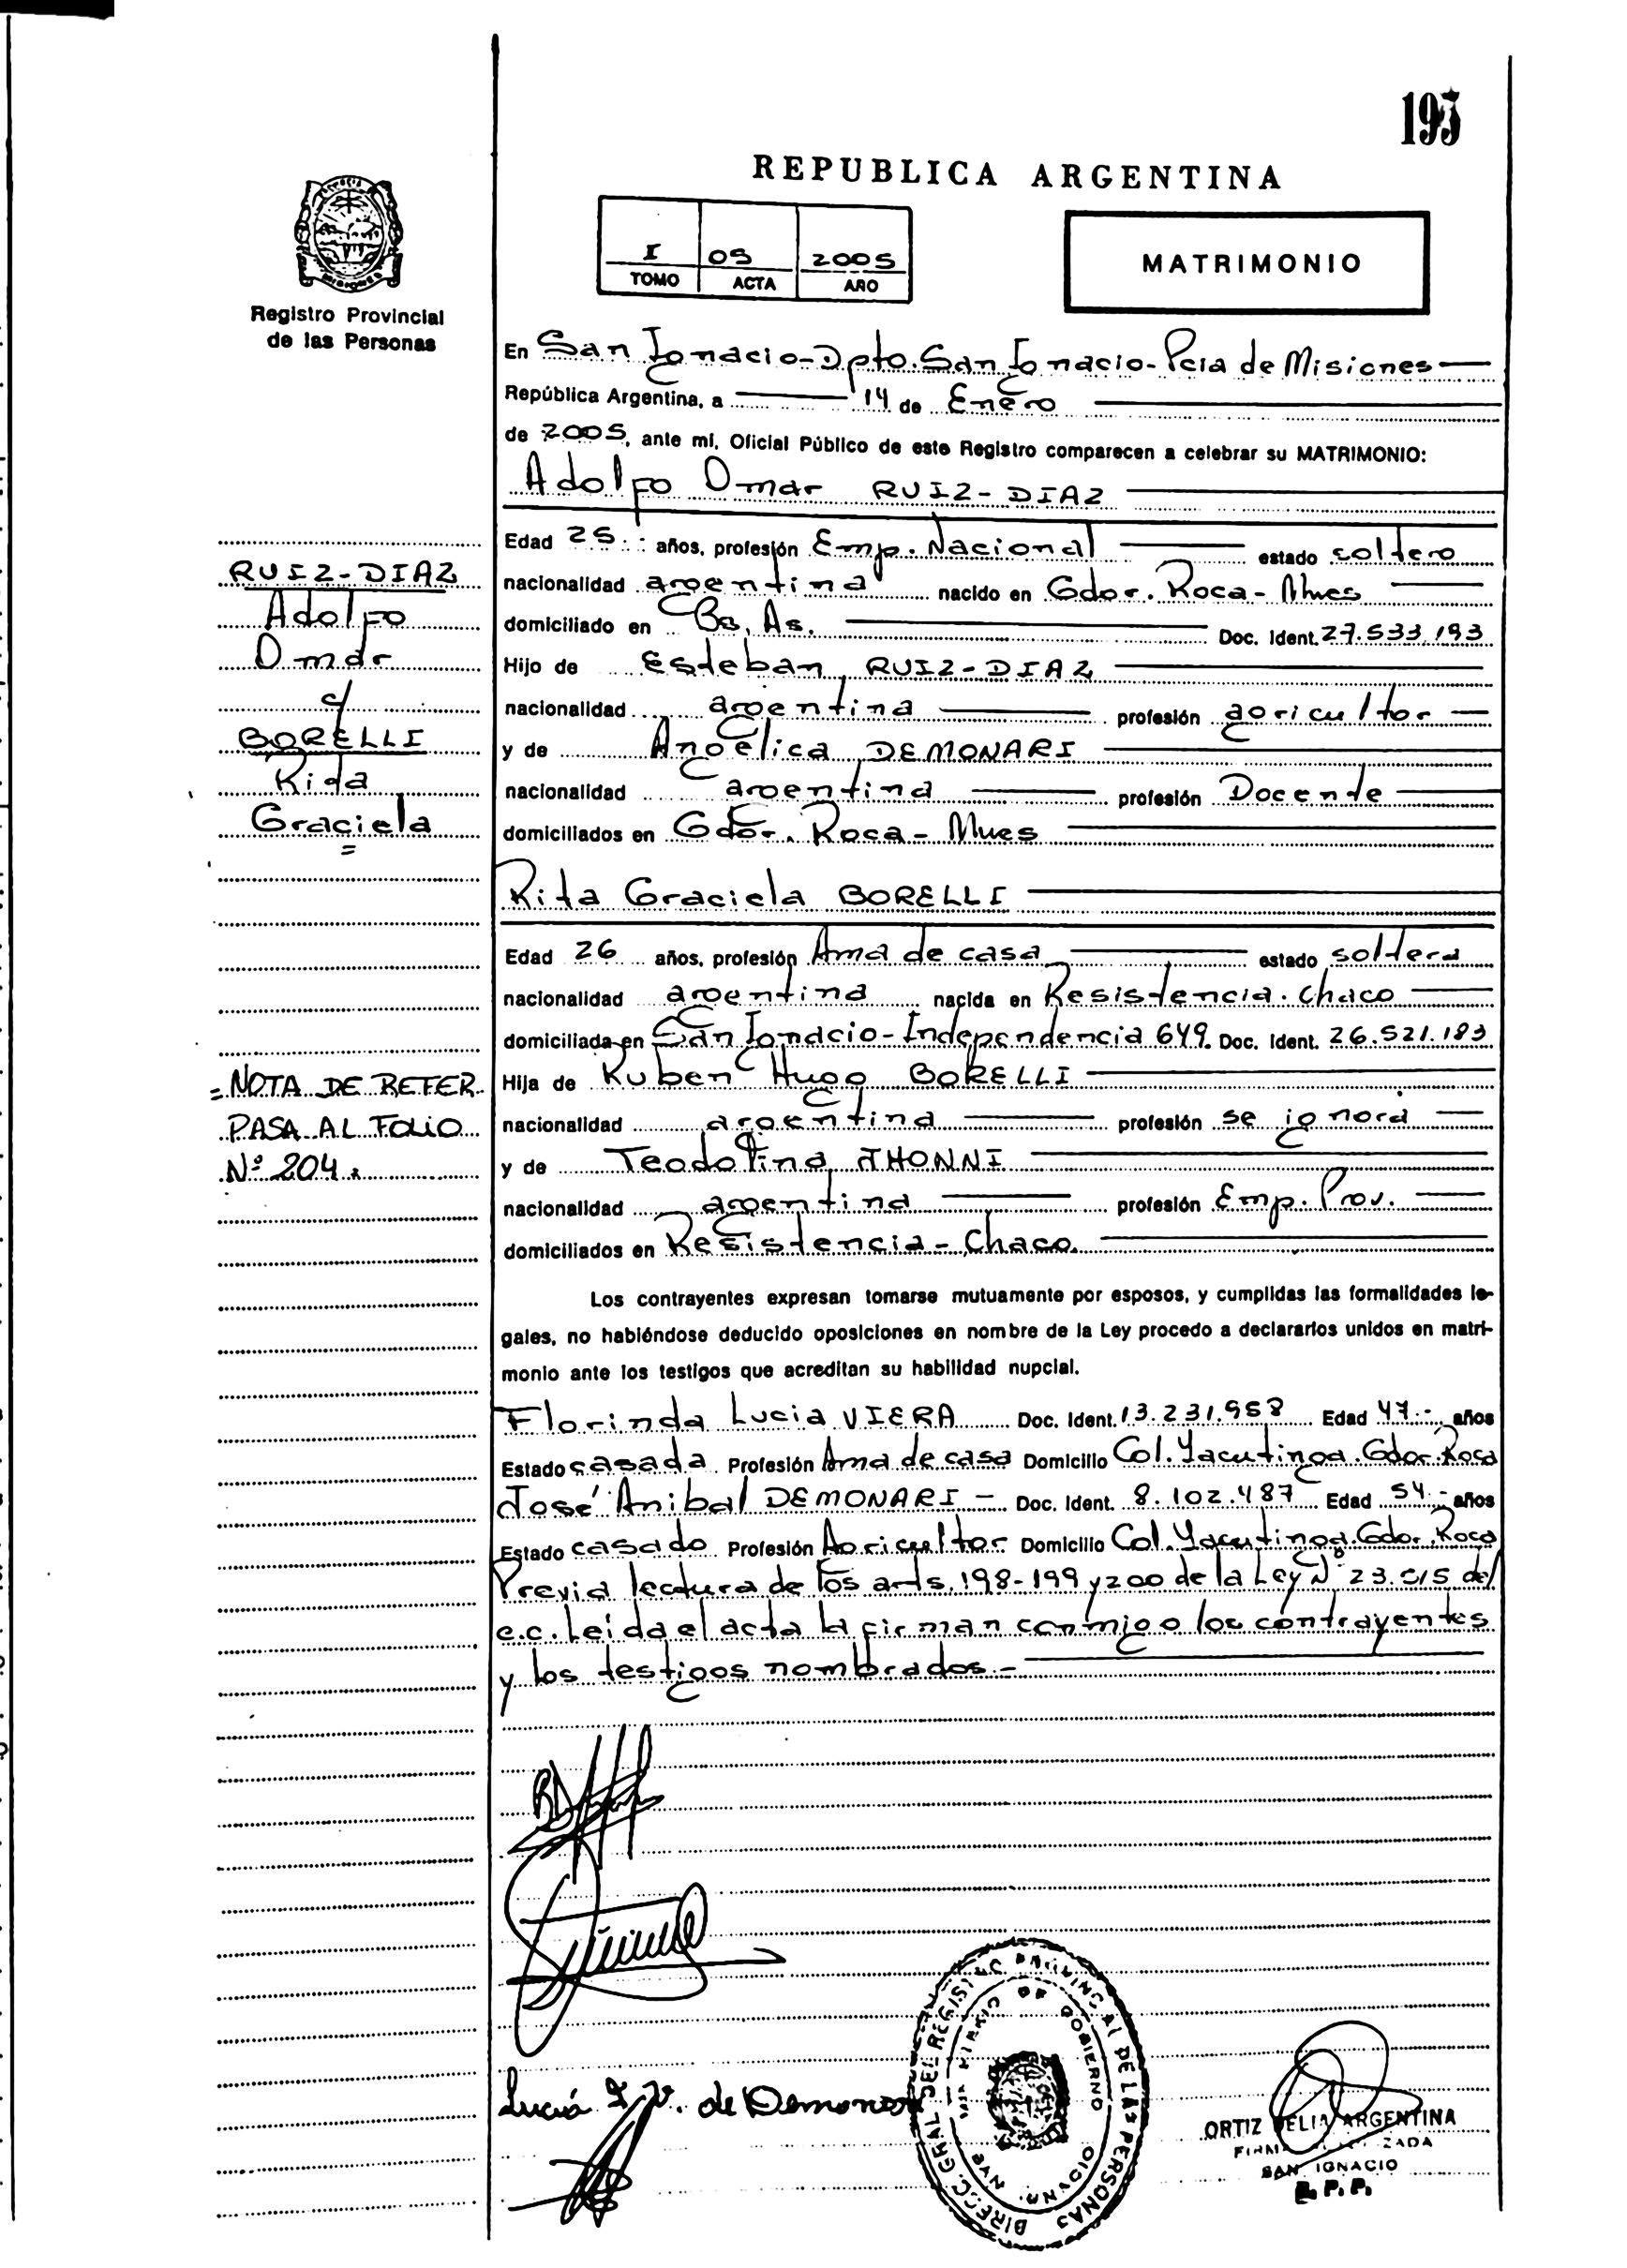 195
REPUBLICA ARGENTINA
I 05 2005
TOMO ACTA AÑO
MATRIMONIO
Registro Provincial
de las Personas
En San Ignacio-Dpto. San Ignacio-Pcia de Misiones
República Argentina, a 14 de Enero
de 2005, ante mí, Oficial Público de este Registro comparecen a celebrar su MATRIMONIO:
Adolfo Omar RUIZ-DIAZ
Edad 25 años, profesión Emp. Nacional estado soltero
nacionalidad argentina nacido en Gdor. Roca-Mnes
domiciliado en Bs. As. Doc. Ident. 27.533.193
Hijo de Esteban RUIZ-DIAZ
nacionalidad argentina profesión agricultor
y de Angélica DEMONARI
nacionalidad argentina profesión Docente
domiciliados en Gdor. Roca-Mnes
RUIZ-DIAZ
Adolfo
Omar
c/
BORELLI
Rita
Graciela
=
Rita Graciela BORELLI
Edad 26 años, profesión Ama de casa estado soltera
nacionalidad argentina nacida en Resistencia. Chaco
domiciliada en San Ignacio-Independencia 649. Doc. Ident. 26.521.183
Hija de Ruben Hugo BORELLI
nacionalidad argentina profesión se ignora
y de Teodolina THONNI
nacionalidad argentina profesión Emp. Prov.
domiciliados en Resistencia-Chaco.
=NOTA DE REFER.
PASA AL FOLIO
Nº 204.
Los contrayentes expresan tomarse mutuamente por esposos, y cumplidas las formalidades le-
gales, no habiéndose deducido oposiciones en nombre de la Ley procedo a declararlos unidos en matri-
monio ante los testigos que acreditan su habilidad nupcial.
Florinda Lucia VIERA Doc. Ident. 13.231.958 Edad 47.- años
Estado casada Profesión Ama de casa Domicilio Col. Yacutinga. Gdor. Roca
José Anibal DEMONARI- Doc. Ident. 8.102.487 Edad 54.- años
Estado casado Profesión Agricultor Domicilio Col. Yacutinga. Gdor. Roca
Previa lectura de los arts. 198-199 y 200 de la Ley Nº 23.515 del
c.c. Leída el acta la firman conmigo los contrayentes
y los testigos nombrados.-
Lucia F. V. de Demonari
DIRECC. GRAL. DEL REGISTRO PROVINCIAL DE LAS PERSONAS
MINISTERIO DE GOBIERNO
SAN IGNACIO
ORTIZ DELIA ARGENTINA
SAN IGNACIO
R.P.P.